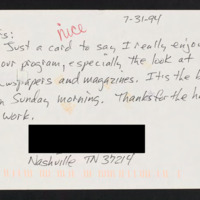 7-31-94
nice
is:
Just a card to say I really enjoy
our program, especially the look at
wspapers and magazines. It is the b
n Sunday morning. Thanks for the ha
work.
Nashville TN 37214